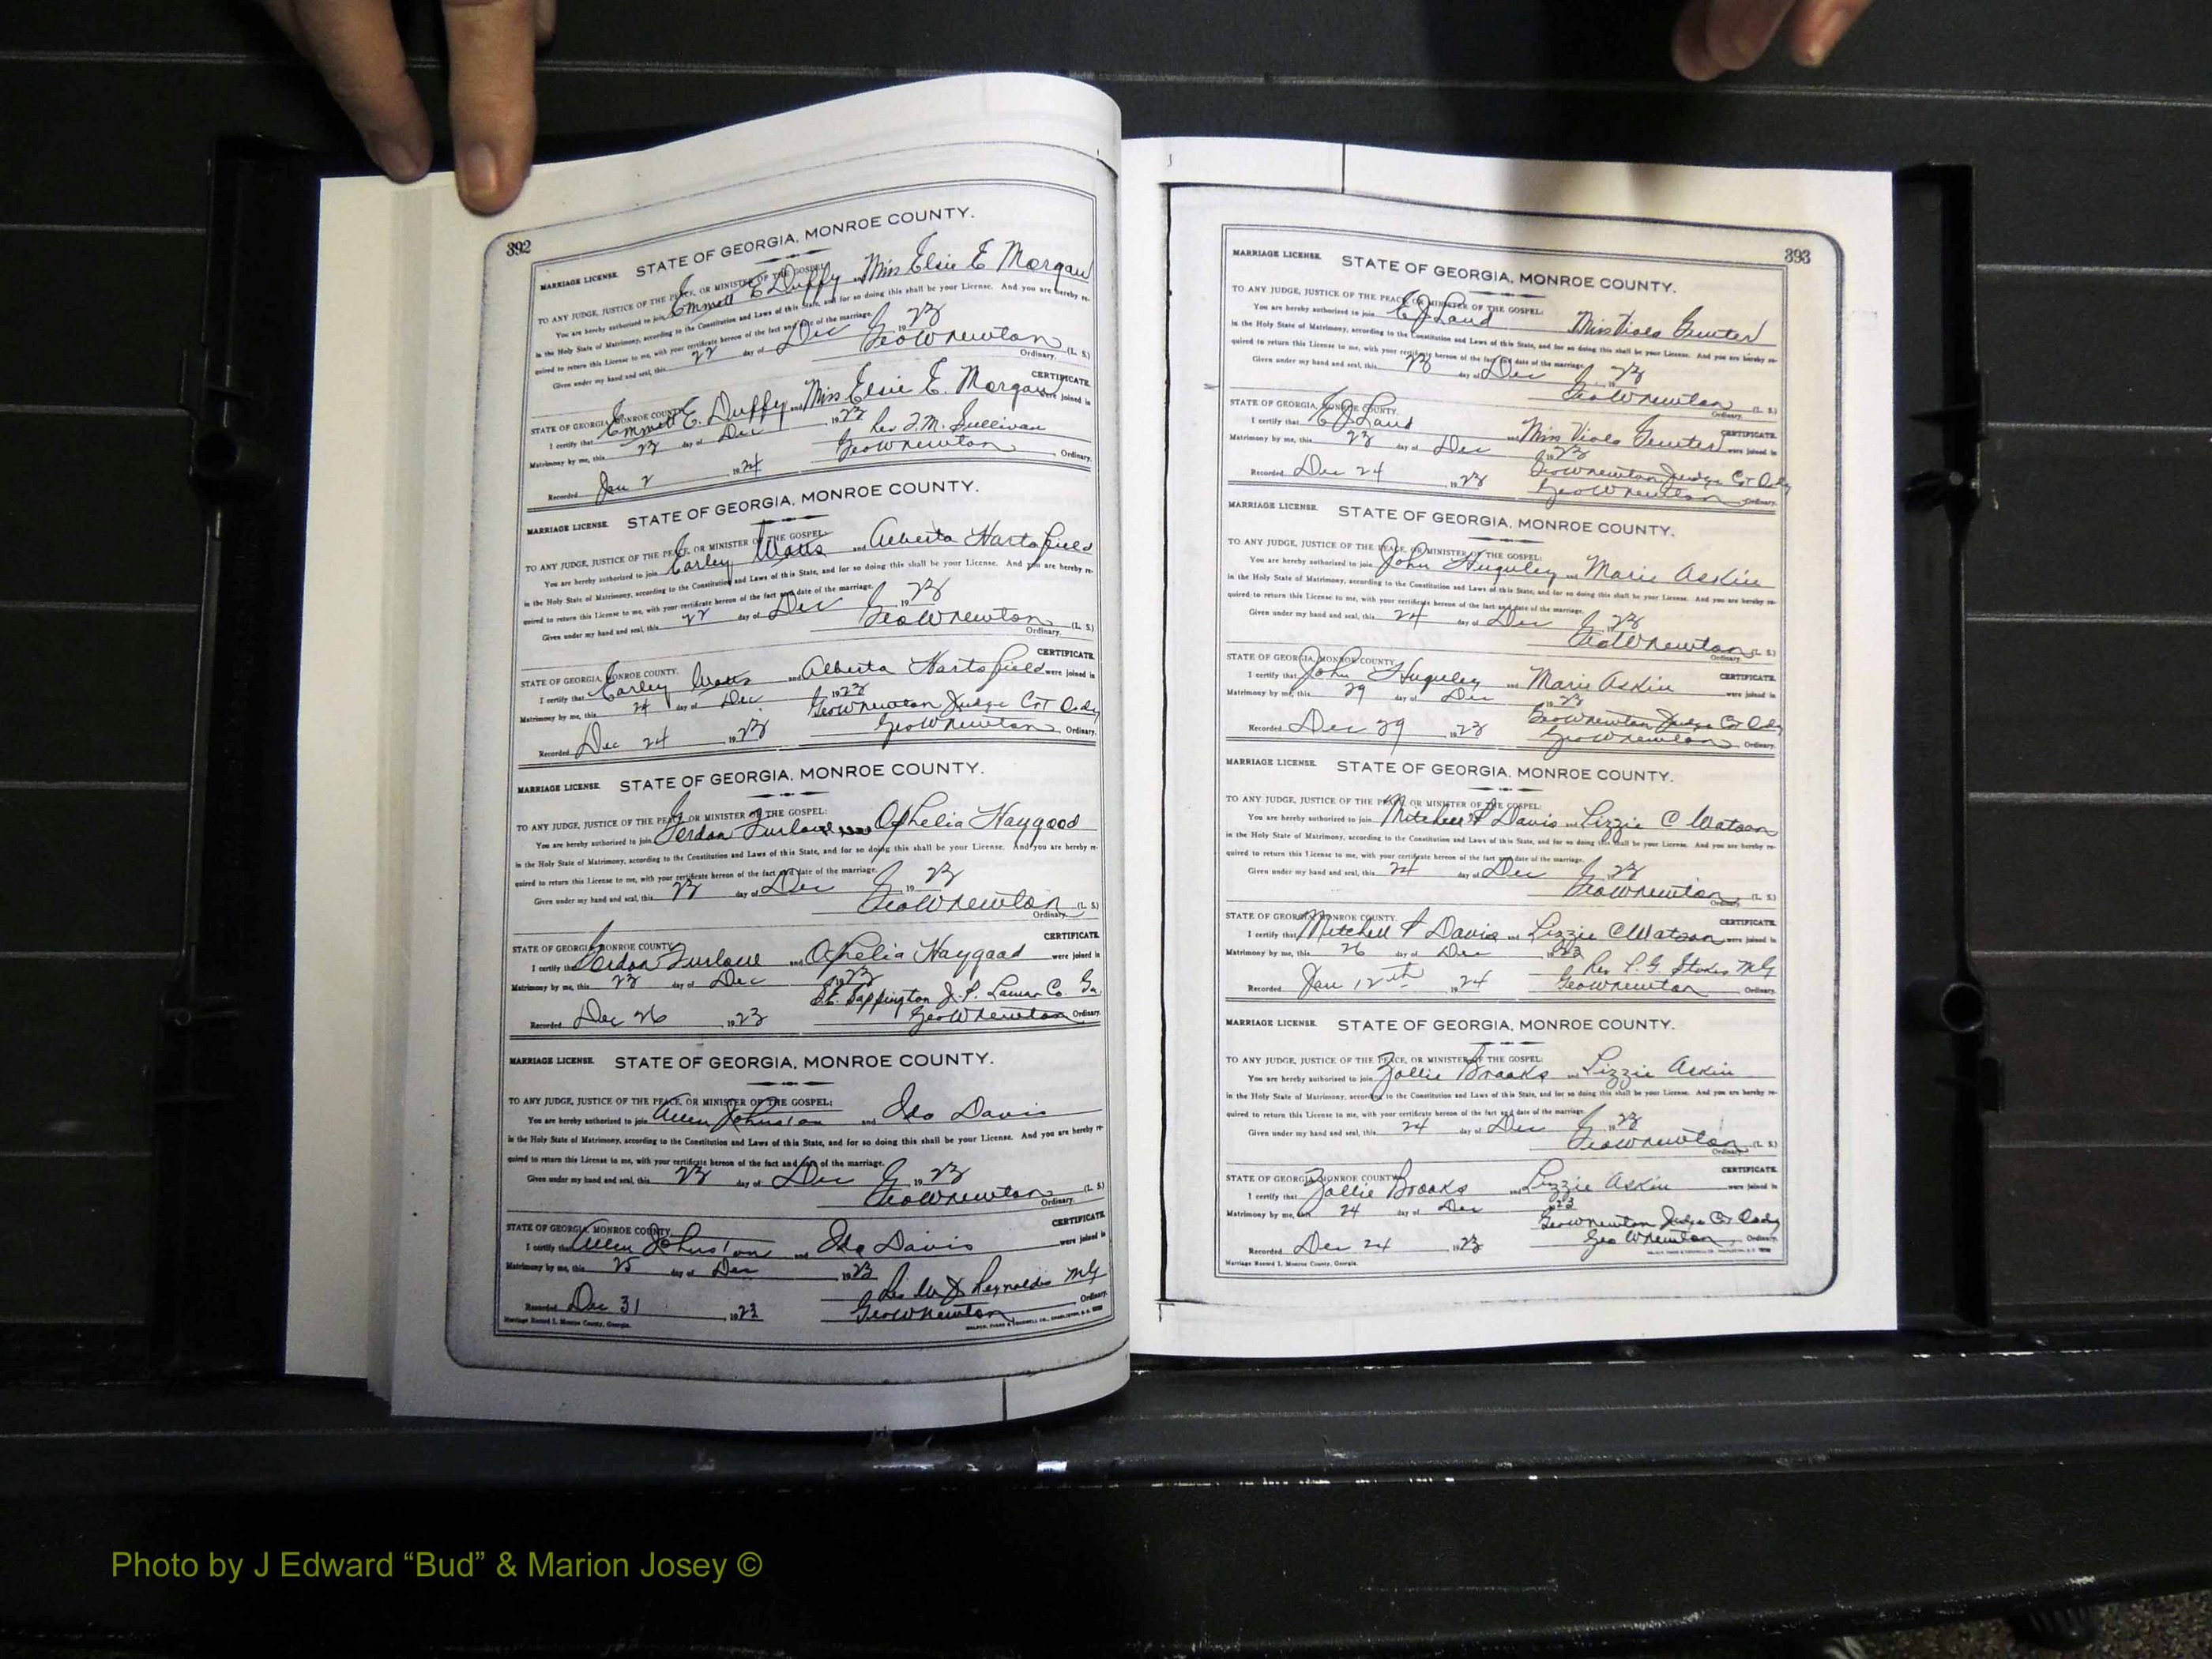 392
MARRIAGE LICENSE. STATE OF GEORGIA, MONROE COUNTY.
TO ANY JUDGE, JUSTICE OF THE PEACE, OR MINISTER OF THE GOSPEL:
You are hereby authorized to join Emmett E Duffy Miss Elsie E Morgan
in the Holy State of Matrimony, according to the Constitution and Laws of this State, and for so doing this shall be your License. And you are hereby re-
quired to return this License to me, with your certificate hereon of the fact and date of the marriage.
Given under my hand and seal, this 22 day of Dec 1923
Geo W Newton (L. S.)
Ordinary.
CERTIFICATE.
STATE OF GEORGIA, MONROE COUNTY.
I certify that Emmett E. Duffy and Miss Elsie E. Morgan were joined in
Matrimony by me, this 23 day of Dec 1923
Rev T.M. Sullivan
Recorded Jan 2 1924 Geo W Newton Ordinary.
MARRIAGE LICENSE. STATE OF GEORGIA, MONROE COUNTY.
TO ANY JUDGE, JUSTICE OF THE PEACE, OR MINISTER OF THE GOSPEL:
You are hereby authorized to join Earley Watts and Alberta Hartsfield
in the Holy State of Matrimony, according to the Constitution and Laws of this State, and for so doing this shall be your License. And you are hereby re-
quired to return this License to me, with your certificate hereon of the fact and date of the marriage.
Given under my hand and seal, this 22 day of Dec 1923
Geo W Newton (L. S.)
Ordinary.
CERTIFICATE.
STATE OF GEORGIA, MONROE COUNTY.
I certify that Earley Watts and Alberta Hartsfield were joined in
Matrimony by me, this 24 day of Dec 1923
Geo W Newton Judge Crt Ordy
Recorded Dec 24 1923 Geo W Newton Ordinary.
MARRIAGE LICENSE. STATE OF GEORGIA, MONROE COUNTY.
TO ANY JUDGE, JUSTICE OF THE PEACE, OR MINISTER OF THE GOSPEL:
You are hereby authorized to join Gordon Furlow and Ophelia Haygood
in the Holy State of Matrimony, according to the Constitution and Laws of this State, and for so doing this shall be your License. And you are hereby re-
quired to return this License to me, with your certificate hereon of the fact and date of the marriage.
Given under my hand and seal, this 23 day of Dec 1923
Geo W Newton (L. S.)
Ordinary.
CERTIFICATE.
STATE OF GEORGIA, MONROE COUNTY.
I certify that Gordon Furlow and Ophelia Haygood were joined in
Matrimony by me, this 23 day of Dec 1923
S.E. Sappington J.P. Lamar Co. Ga.
Recorded Dec 26 1923 Geo W Newton Ordinary.
MARRIAGE LICENSE. STATE OF GEORGIA, MONROE COUNTY.
TO ANY JUDGE, JUSTICE OF THE PEACE, OR MINISTER OF THE GOSPEL:
You are hereby authorized to join Allen Johnston and Ida Davis
in the Holy State of Matrimony, according to the Constitution and Laws of this State, and for so doing this shall be your License. And you are hereby re-
quired to return this License to me, with your certificate hereon of the fact and date of the marriage.
Given under my hand and seal, this 23 day of Dec 1923
Geo W Newton (L. S.)
Ordinary.
CERTIFICATE
STATE OF GEORGIA, MONROE COUNTY.
I certify that Allen Johnston and Ida Davis were joined in
Matrimony by me, this 25 day of Dec 1923
Rev W J Reynolds MG
Recorded Dec 31 1923 Geo W Newton Ordinary.
Marriage Record I, Monroe County, Georgia.
393
MARRIAGE LICENSE. STATE OF GEORGIA, MONROE COUNTY.
TO ANY JUDGE, JUSTICE OF THE PEACE, OR MINISTER OF THE GOSPEL:
You are hereby authorized to join E J Land Miss Viola Gunter
in the Holy State of Matrimony, according to the Constitution and Laws of this State, and for so doing this shall be your License. And you are hereby re-
quired to return this License to me, with your certificate hereon of the fact and date of the marriage.
Given under my hand and seal, this 23 day of Dec 1923
Geo W Newton (L. S.)
Ordinary.
CERTIFICATE.
STATE OF GEORGIA, MONROE COUNTY.
I certify that E J Land and Miss Viola Gunter were joined in
Matrimony by me, this 23 day of Dec 1923
Geo W Newton Judge Crt Ordy
Recorded Dec 24 1923 Geo W Newton Ordinary.
MARRIAGE LICENSE. STATE OF GEORGIA, MONROE COUNTY.
TO ANY JUDGE, JUSTICE OF THE PEACE, OR MINISTER OF THE GOSPEL:
You are hereby authorized to join John Huguley and Marie Askin
in the Holy State of Matrimony, according to the Constitution and Laws of this State, and for so doing this shall be your License. And you are hereby re-
quired to return this License to me, with your certificate hereon of the fact and date of the marriage.
Given under my hand and seal, this 24 day of Dec 1923
Geo W Newton (L. S.)
Ordinary.
STATE OF GEORGIA, MONROE COUNTY. CERTIFICATE.
I certify that John Huguley and Marie Askin were joined in
Matrimony by me, this 29 day of Dec 1923
Geo W Newton Judge Crt Ordy
Recorded Dec 29 1923 Geo W Newton Ordinary.
MARRIAGE LICENSE. STATE OF GEORGIA, MONROE COUNTY.
TO ANY JUDGE, JUSTICE OF THE PEACE, OR MINISTER OF THE GOSPEL:
You are hereby authorized to join Mitchell P Davis and Lizzie C Watson
in the Holy State of Matrimony, according to the Constitution and Laws of this State, and for so doing this shall be your License. And you are hereby re-
quired to return this License to me, with your certificate hereon of the fact and date of the marriage.
Given under my hand and seal, this 24 day of Dec 1923
Geo W Newton (L. S.)
Ordinary.
STATE OF GEORGIA, MONROE COUNTY. CERTIFICATE.
I certify that Mitchell P Davis and Lizzie C Watson were joined in
Matrimony by me, this 26 day of Dec 1923
Rev P. G. Stokes MG
Recorded Jan 12th 1924 Geo W Newton Ordinary.
MARRIAGE LICENSE. STATE OF GEORGIA, MONROE COUNTY.
TO ANY JUDGE, JUSTICE OF THE PEACE, OR MINISTER OF THE GOSPEL:
You are hereby authorized to join Zollie Brooks and Lizzie Askin
in the Holy State of Matrimony, according to the Constitution and Laws of this State, and for so doing this shall be your License. And you are hereby re-
quired to return this License to me, with your certificate hereon of the fact and date of the marriage.
Given under my hand and seal, this 24 day of Dec 1923
Geo W Newton (L. S.)
Ordinary.
STATE OF GEORGIA, MONROE COUNTY. CERTIFICATE.
I certify that Zollie Brooks and Lizzie Askin were joined in
Matrimony by me, this 24 day of Dec 1923
Geo W Newton Judge Crt Ordy
Recorded Dec 24 1923 Geo W Newton Ordinary.
Marriage Record I, Monroe County, Georgia.
Photo by J Edward “Bud” & Marion Josey ©